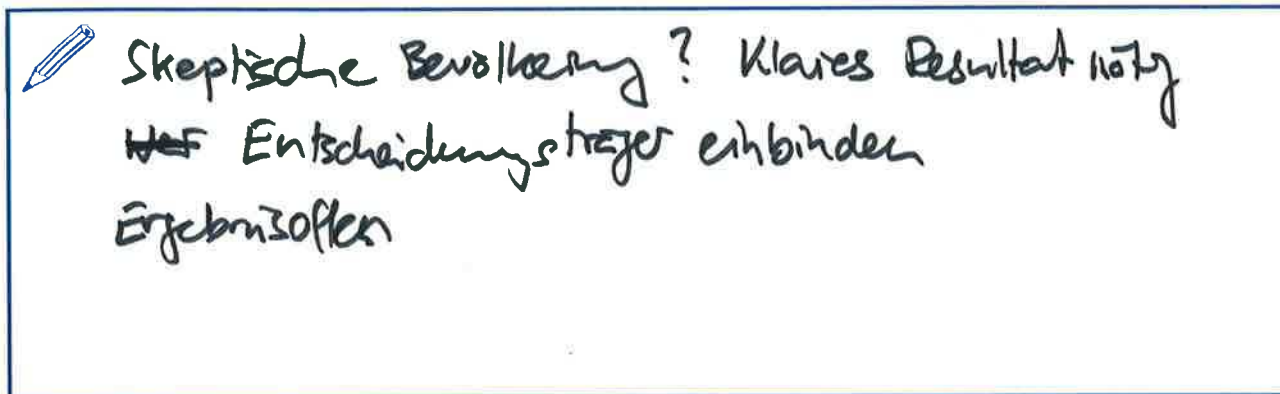 Skeptische Bevölkerung? Klares Resultat nötig
Entscheidungsträger einbinden
Ergebnisoffen